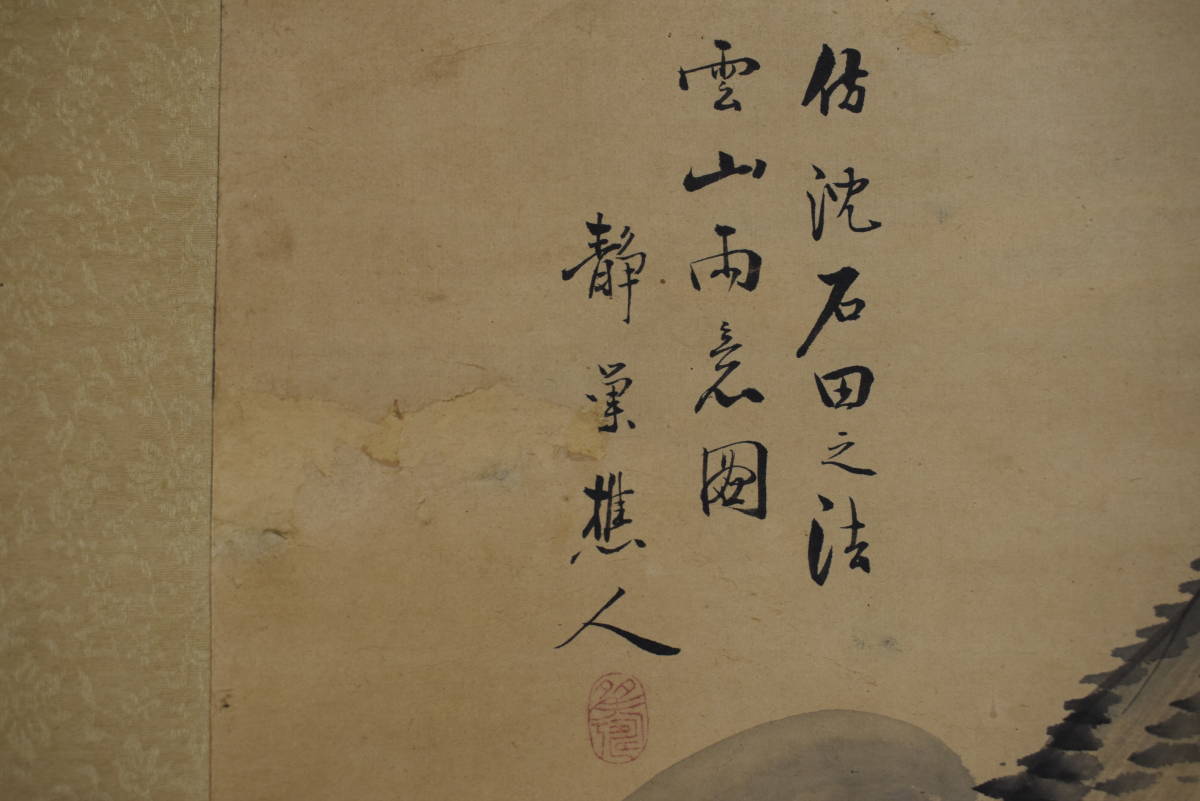 仿沈石田之法
雲山雨意圖
靜巢樵人